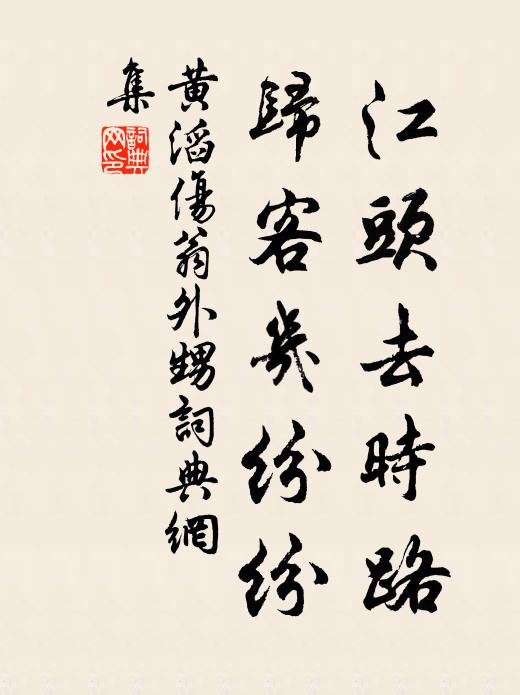 江頭去時路
歸客幾紛紛
黃滔傷翁外甥詞典網
集
詞典網印